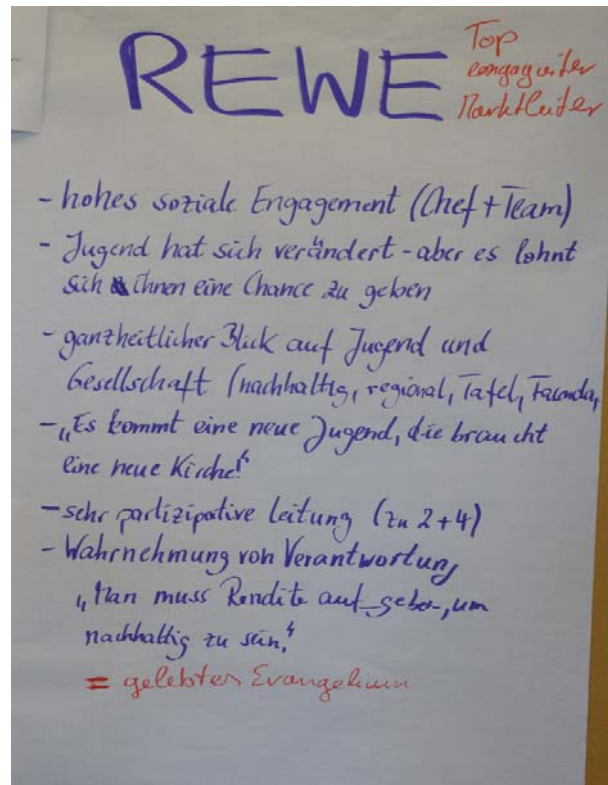 REWE
Top
engagierter
Marktleiter
- hohes soziale Engagement (Chef + Team)
- Jugend hat sich verändert - aber es lohnt
sich ihnen eine Chance zu geben
- ganzheitlicher Blick auf Jugend und
Gesellschaft (nachhaltig, regional, Tafel,
- „Es kommt eine neue Jugend, die braucht
eine neue Kirche!“
- sehr partizipative Leitung (zu 2+4)
- Wahrnehmung von Verantwortung
„Man muss Rendite aufgeben, um
nachhaltig zu sein.“
= gelebtes Evangelium